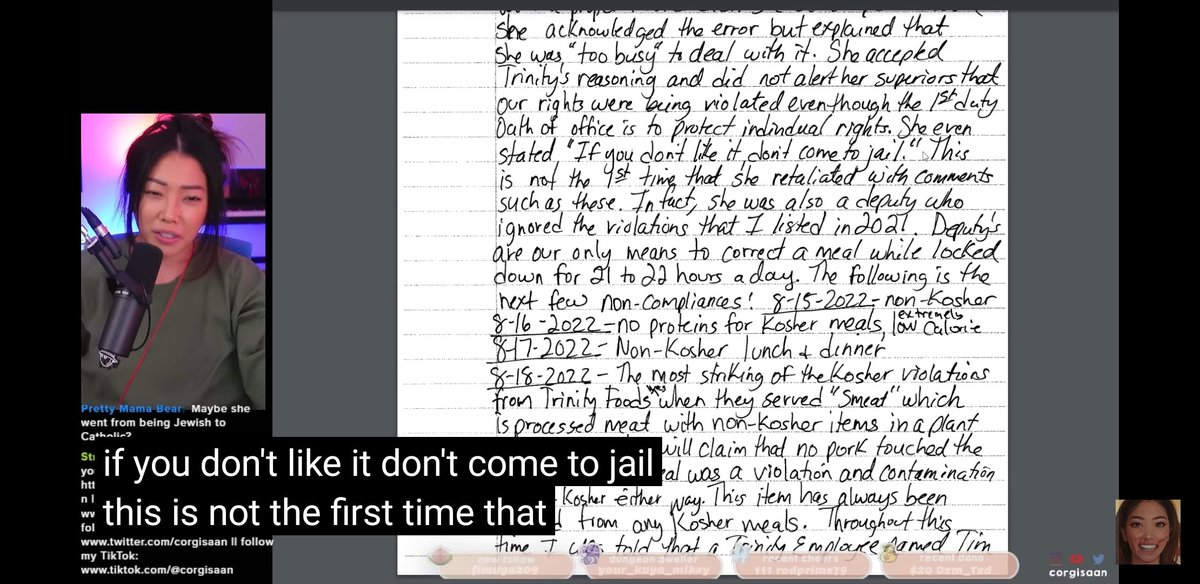 she acknowledged the error but explained that
she was "too busy" to deal with it. She accepted
Trinity's reasoning and did not alert her superiors that
our rights were being violated eventhough the 1st duty
Oath of office is to protect indindual rights. She even
stated, "If you don't like it, don't come to jail." This
is not the 1st time that she retaliated with comments
such as these. In fact, she was also a deputy who
ignored the violations that I listed in 2021. Deputy's
are our only means to correct a meal while locked
down for 21 to 22 hours a day. The following is the
next few non-compliances! 8-15-2022- non-Kosher
8-16-2022-no proteins for Kosher meals, extremely low calorie
8-17-2022- Non-Kosher lunch + dinner
8-18-2022- The most striking of the Kosher violations
from Trinity Foods yes when they served "Smeat" which
is processed meat with non-Kosher items in a plant
will claim that no pork touched the
was a violation and contamination
Kosher either way. This item has always been
from any Kosher meals. Throughout this
time I was told that a Trinity Employee named Tim
Pretty Mama Bear: Maybe she
went from being Jewish to
Catholic?
www.twitter.com/corgisaan II follow
my TikTok:
www.tiktok.com/@corgisaan
if you don't like it don't come to jail
this is not the first time that
new follow
fimuga209
dungeon dweller
your_kuya_mikey
recent cheers
111 redprime79
recent dono
$20 Dxm_Txd
corgisaan